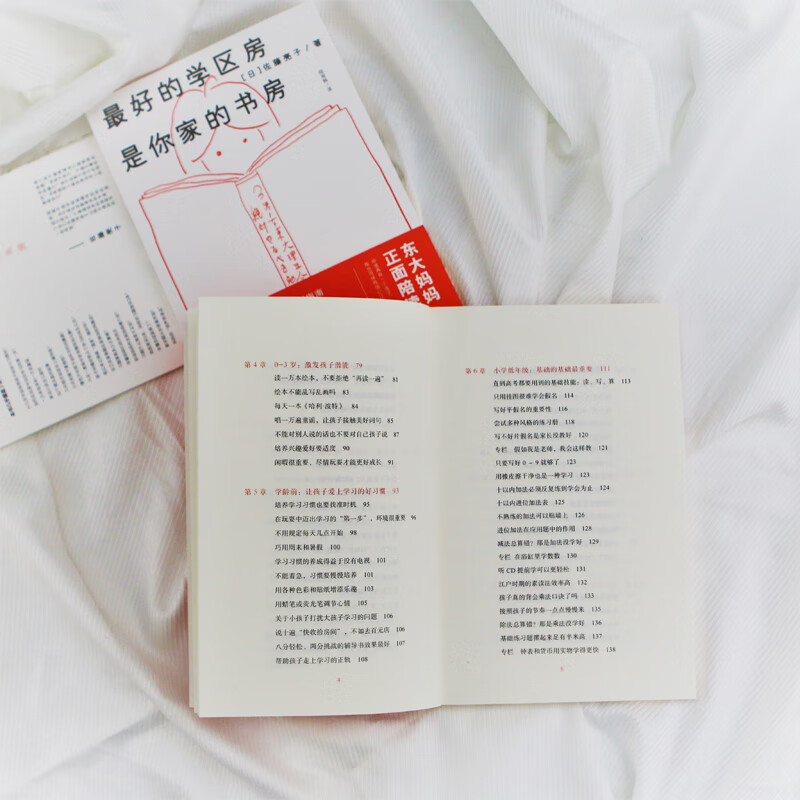 最好的学区房
是你家的书房
[日]佐藤亮子/著
东大妈妈
正面陪
第4章 0~3岁：激发孩子潜能 79
读一万本绘本，不要拒绝“再读一遍” 81
绘本不能乱写乱画吗 83
每天一本《哈利·波特》 84
唱一万遍童谣，让孩子接触美好词句 85
不能对别人说的话也不要对自己孩子说 87
培养兴趣爱好要适度 90
闲暇很重要，尽情玩耍才能更好成长 91
第5章 学龄前：让孩子爱上学习的好习惯 93
培养学习习惯也要找准时机 95
在玩耍中迈出学习的“第一步”，环境很重要 96
不用规定每天几点开始 98
巧用周末和暑假 100
学习习惯的养成得益于没有电视 101
不能着急，习惯要慢慢培养 101
用各种色彩和贴纸增添乐趣 103
用蜡笔或荧光笔调节心情 105
关于小孩子打扰大孩子学习的问题 106
说十遍“快收拾房间”，不如去百元店 106
八分轻松、两分挑战的辅导书效果最好 107
帮助孩子走上学习的正轨 108
4
第6章 小学低年级：基础的基础最重要 111
直到高考都要用到的基础技能：读、写、算 113
只用挂图很难学会假名 114
写好平假名的重要性 116
尝试多种风格的练习册 118
写不好片假名是家长没教好 120
专栏 假如我是老师，我会这样教 121
只要写好0~9就够了 123
用橡皮擦干净也是一种学习 123
十以内加法必须反复练到学会为止 124
十以内进位加法表 125
不熟练的加法可以贴墙上 126
进位加法在应用题中的作用 128
减法总算错？那是加法没学好 129
专栏 在浴缸里学数数 130
听CD提前学可以更轻松 131
江户时期的素读法效率高 132
孩子真的背会乘法口诀了吗 133
按照孩子的节奏一点点慢慢来 135
除法总算错？那是乘法没学好 136
基础练习题摞起来足有半米高 137
专栏 钟表和货币用实物学得更快 138
5